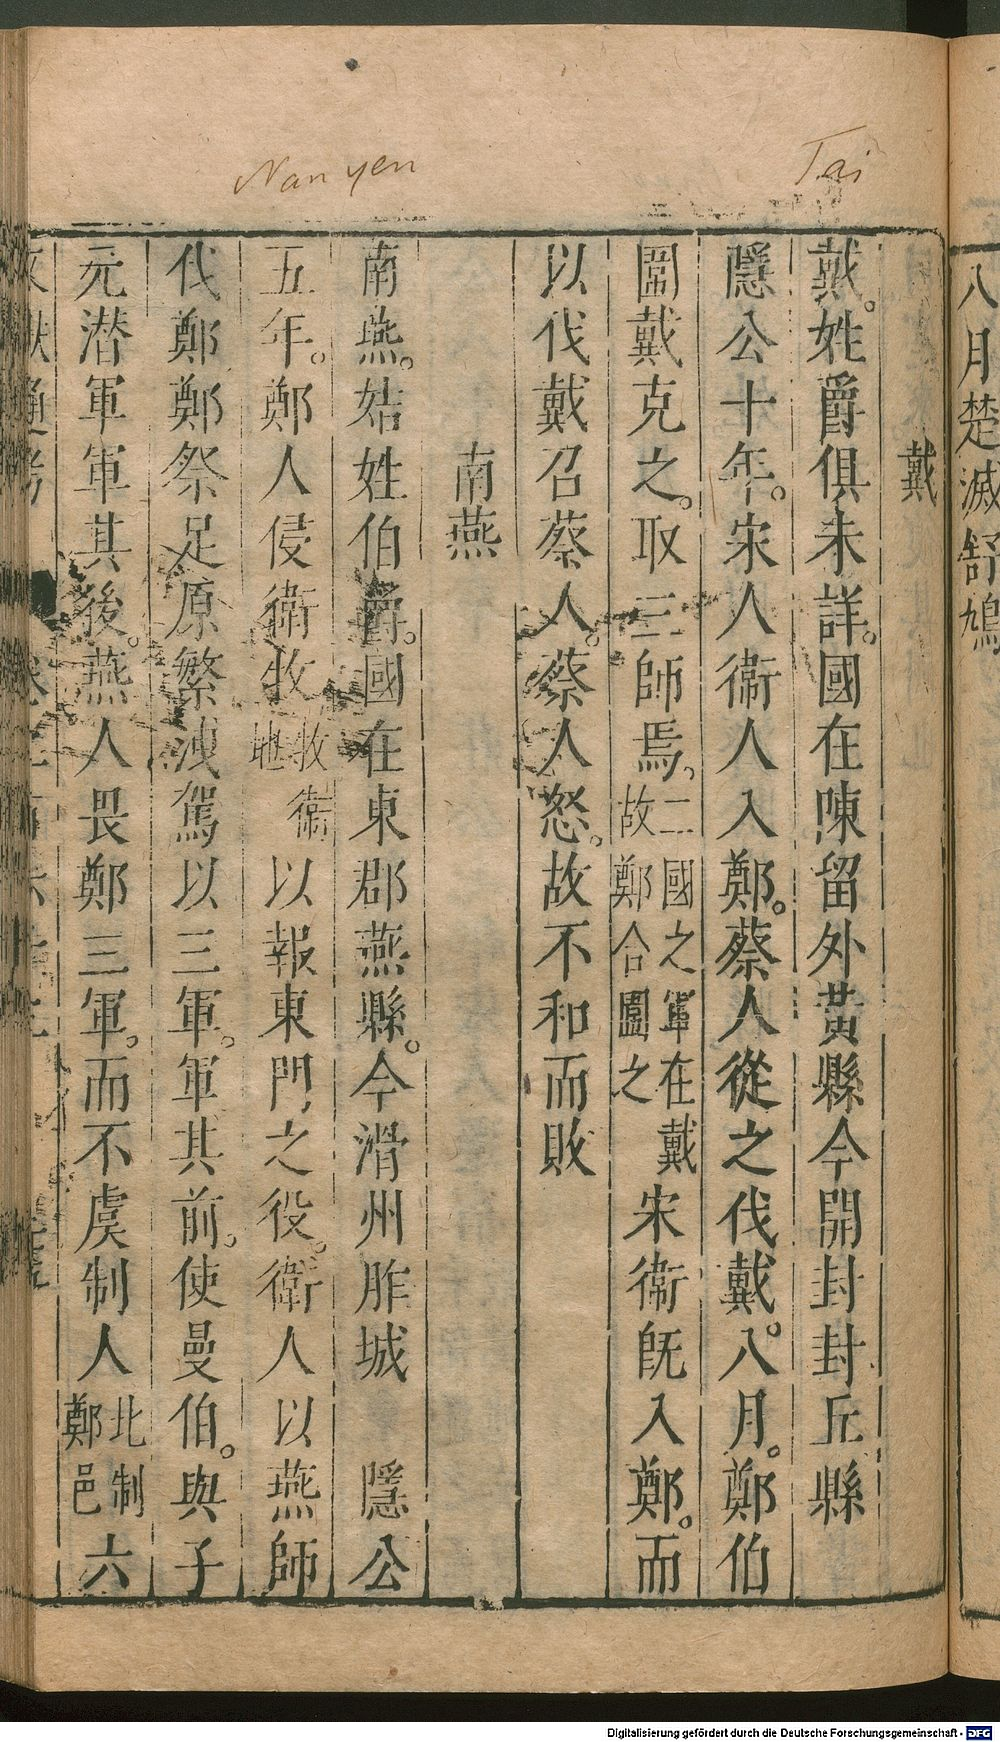 Nan yen
Tai
八月楚滅舒鳩
戴
戴。姓爵俱未詳。國在陳留外黃縣今開封封丘縣
隱公十年。宋人衞人入鄭。蔡人從之伐戴。八月。鄭伯
圍戴克之。取三師焉。二國之軍在戴故鄭合圍之宋衞旣入鄭。而
以伐戴召蔡人。蔡人怒。故不和而敗
南燕
南燕。姞姓伯爵。國在東郡燕縣。今滑州胙城 隱公
五年。鄭人侵衛牧牧衞地以報東門之役。衛人以燕師
伐鄭鄭祭足原繁洩駕以三軍。軍其前。使曼伯。與子
元潜軍軍其後。燕人畏鄭三軍。而不虞制人北制鄭邑六
文獻通考
Digitalisierung gefördert durch die Deutsche Forschungsgemeinschaft - DFG